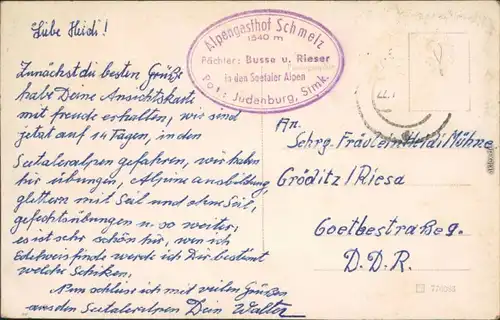 Liebe Heidi!
Zunächst die besten Grüße
habe Deine Ansichtskarte
mit freude erhalten, wir sind
jetzt auf 14 Tagen, in den
Seetaleralpen gefahren, wir haben
hir übungen, Alpine ausbildung,
glettern mit Seil und ohne Seil,
gefechtsübungen u. so weiter,
es ist sehr schön hir, wen ich
Edelweis finde werde ich Dir bestimt
welche Schiken.
Nun schliese ich mit vielen Grüßen
aus den Seetaleralpen Dein Walter
Alpengasthof Schmelz
1540 m
Pächter: Busse u. Rieser
in den Seetaler Alpen
Post: Judenburg, Stmk.
An.
Sehrg. Fräulein Heidi Mühne
Gröditz/Riesa
Goetbestraße 9.
D.D.R.